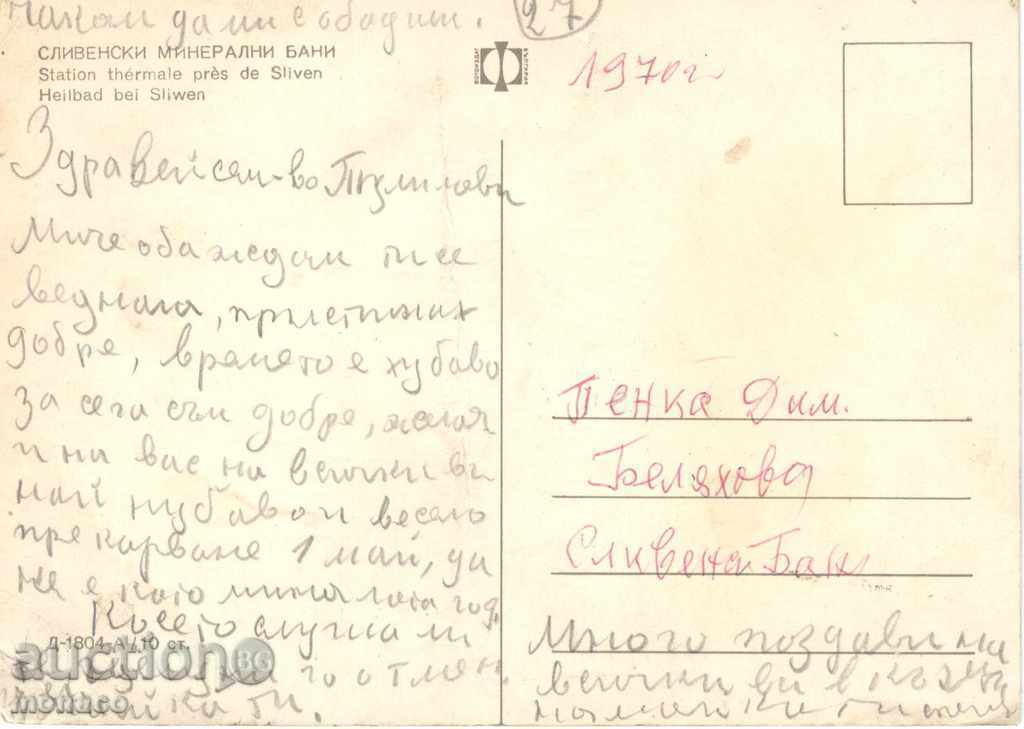 да ми с обадиш.
27
СЛИВЕНСКИ МИНЕРАЛНИ БАНИ
Station thérmale près de Sliven
Heilbad bei Sliwen
1970 г
Здравей сем-во
Миче обаждам ти се
веднага, пристигнах
добре, времето е хубаво
за сега съм добре, желая
и на вас на всички ви
най хубаво и весело
прекарване 1 май, да
не е като миналата год.
Д-1804-А/10 ст.
го отмен
Пенка Дим.
Беляхова
Сливен Бани
Много поздави на
всички ви в къщи
auction BG
monaco